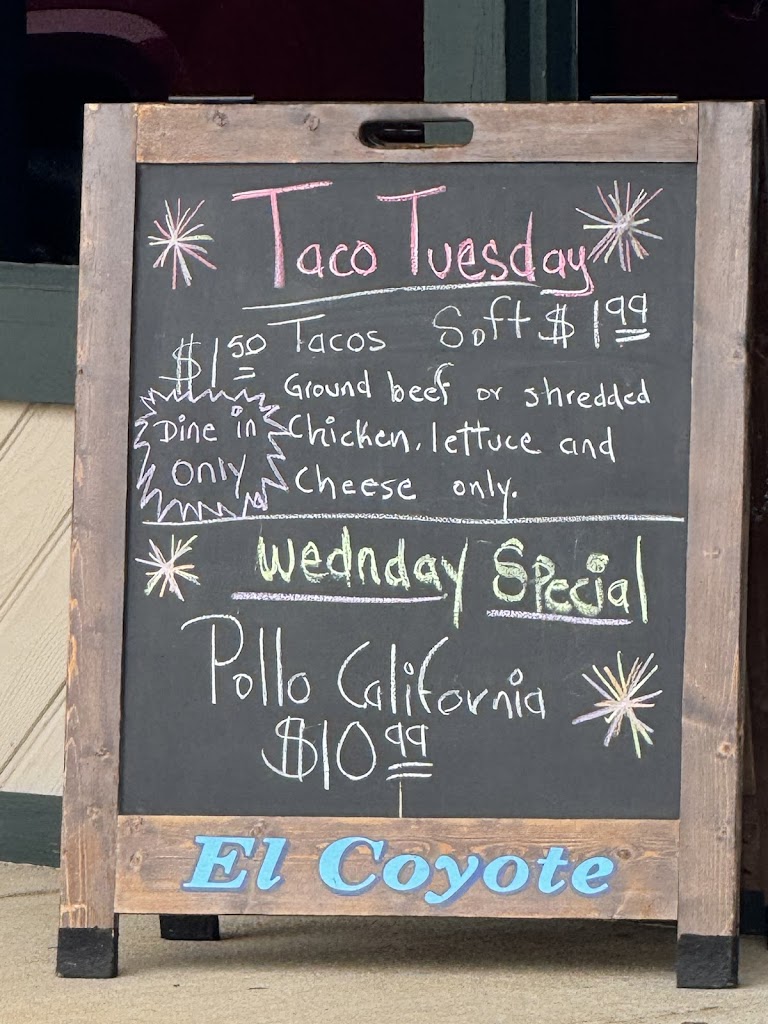 Taco Tuesday
$1.50 Tacos Soft $1.99
Dine in only
Ground beef or shredded
Chicken, lettuce and
Cheese only.
Wednday Special
Pollo California
$10.99
El Coyote